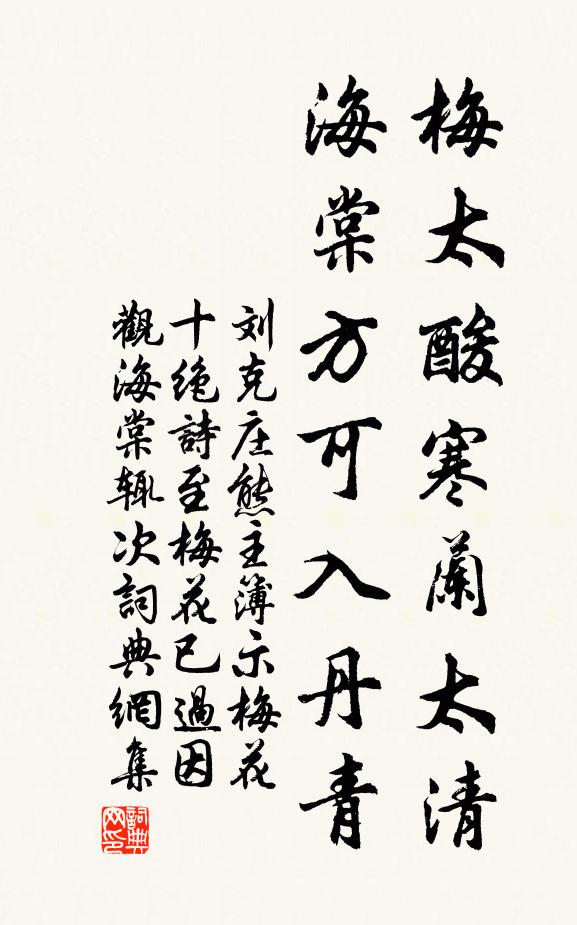 梅太酸寒蘭太清
海棠方可入丹青
刘克庄熊主簿示梅花
十绝詩至梅花已過因
觀海棠辄次詞典網集
詞典
网印